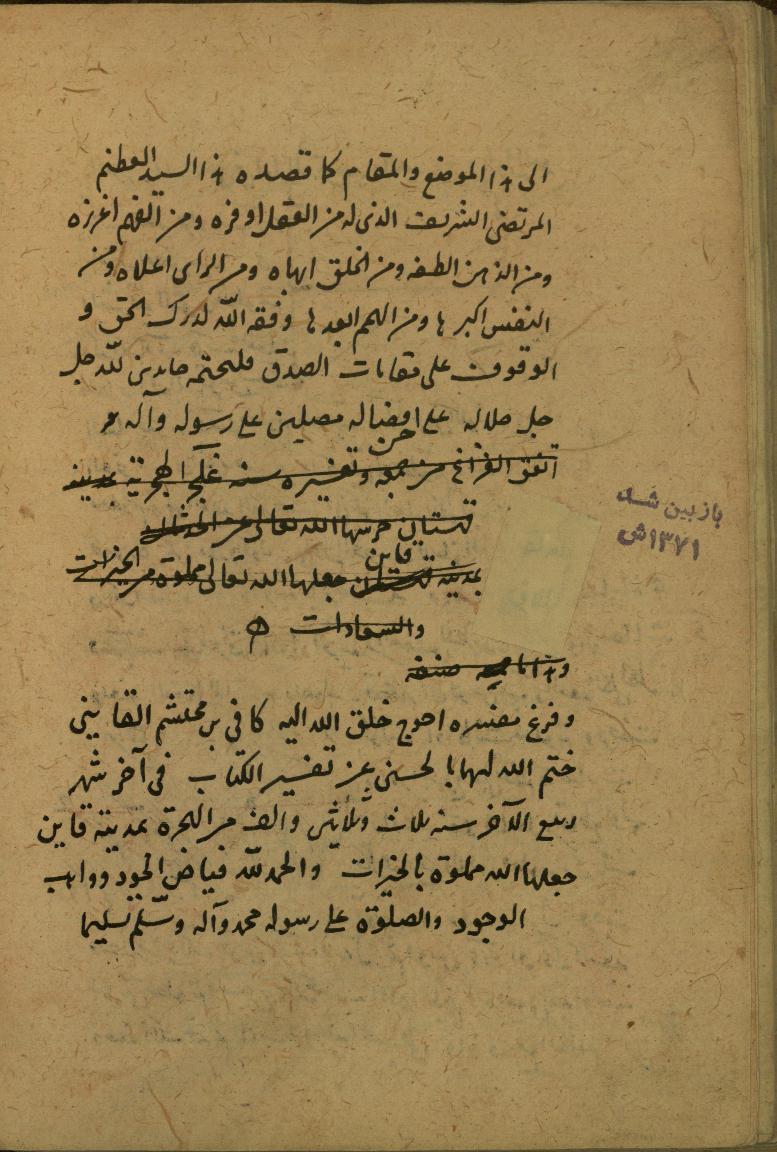 الى هذا الموضع والمقام كما قصده هذا السيد العظيم
المرتضى الشريف الذى له من العقل اوفره ومن الفهم اغزره
ومن الذهن الطفه ومن الخلق ابهاه ومن الراى اعلاه ومن
النفس اكبرها ومن الهمم ابعدها وفقه الله لدرك الحق و
الوقوف على مقامات الصدق فلنختمه حامدين لله جل
جل جلاله على افضاله مصلين على رسوله وآله
اتفق الفراغ من جمعه وتفسيره سنه الهجرية بمدينه
حرسها الله تعالى عن
قاين
بمدينه جعلها الله تعالى مملوة من الخيرات
والسعادات
وهذا ما جمعه صنفه
وفرغ مفسره احوج خلق الله اليه كافى بن محتشم القاينى
ختم الله لهما بالحسنى عن تفسير الكتاب فى آخر شهر
ربيع الآخر سنه ثلاث وثلاثين والف من الهجرة بمدينة قاين
جعلها الله مملوة بالخيرات والحمد لله فياض الجود وواهب
الوجود والصلوة على رسوله محمد وآله وسلم تسليما
بازبین شد
۱۳۷۱ش